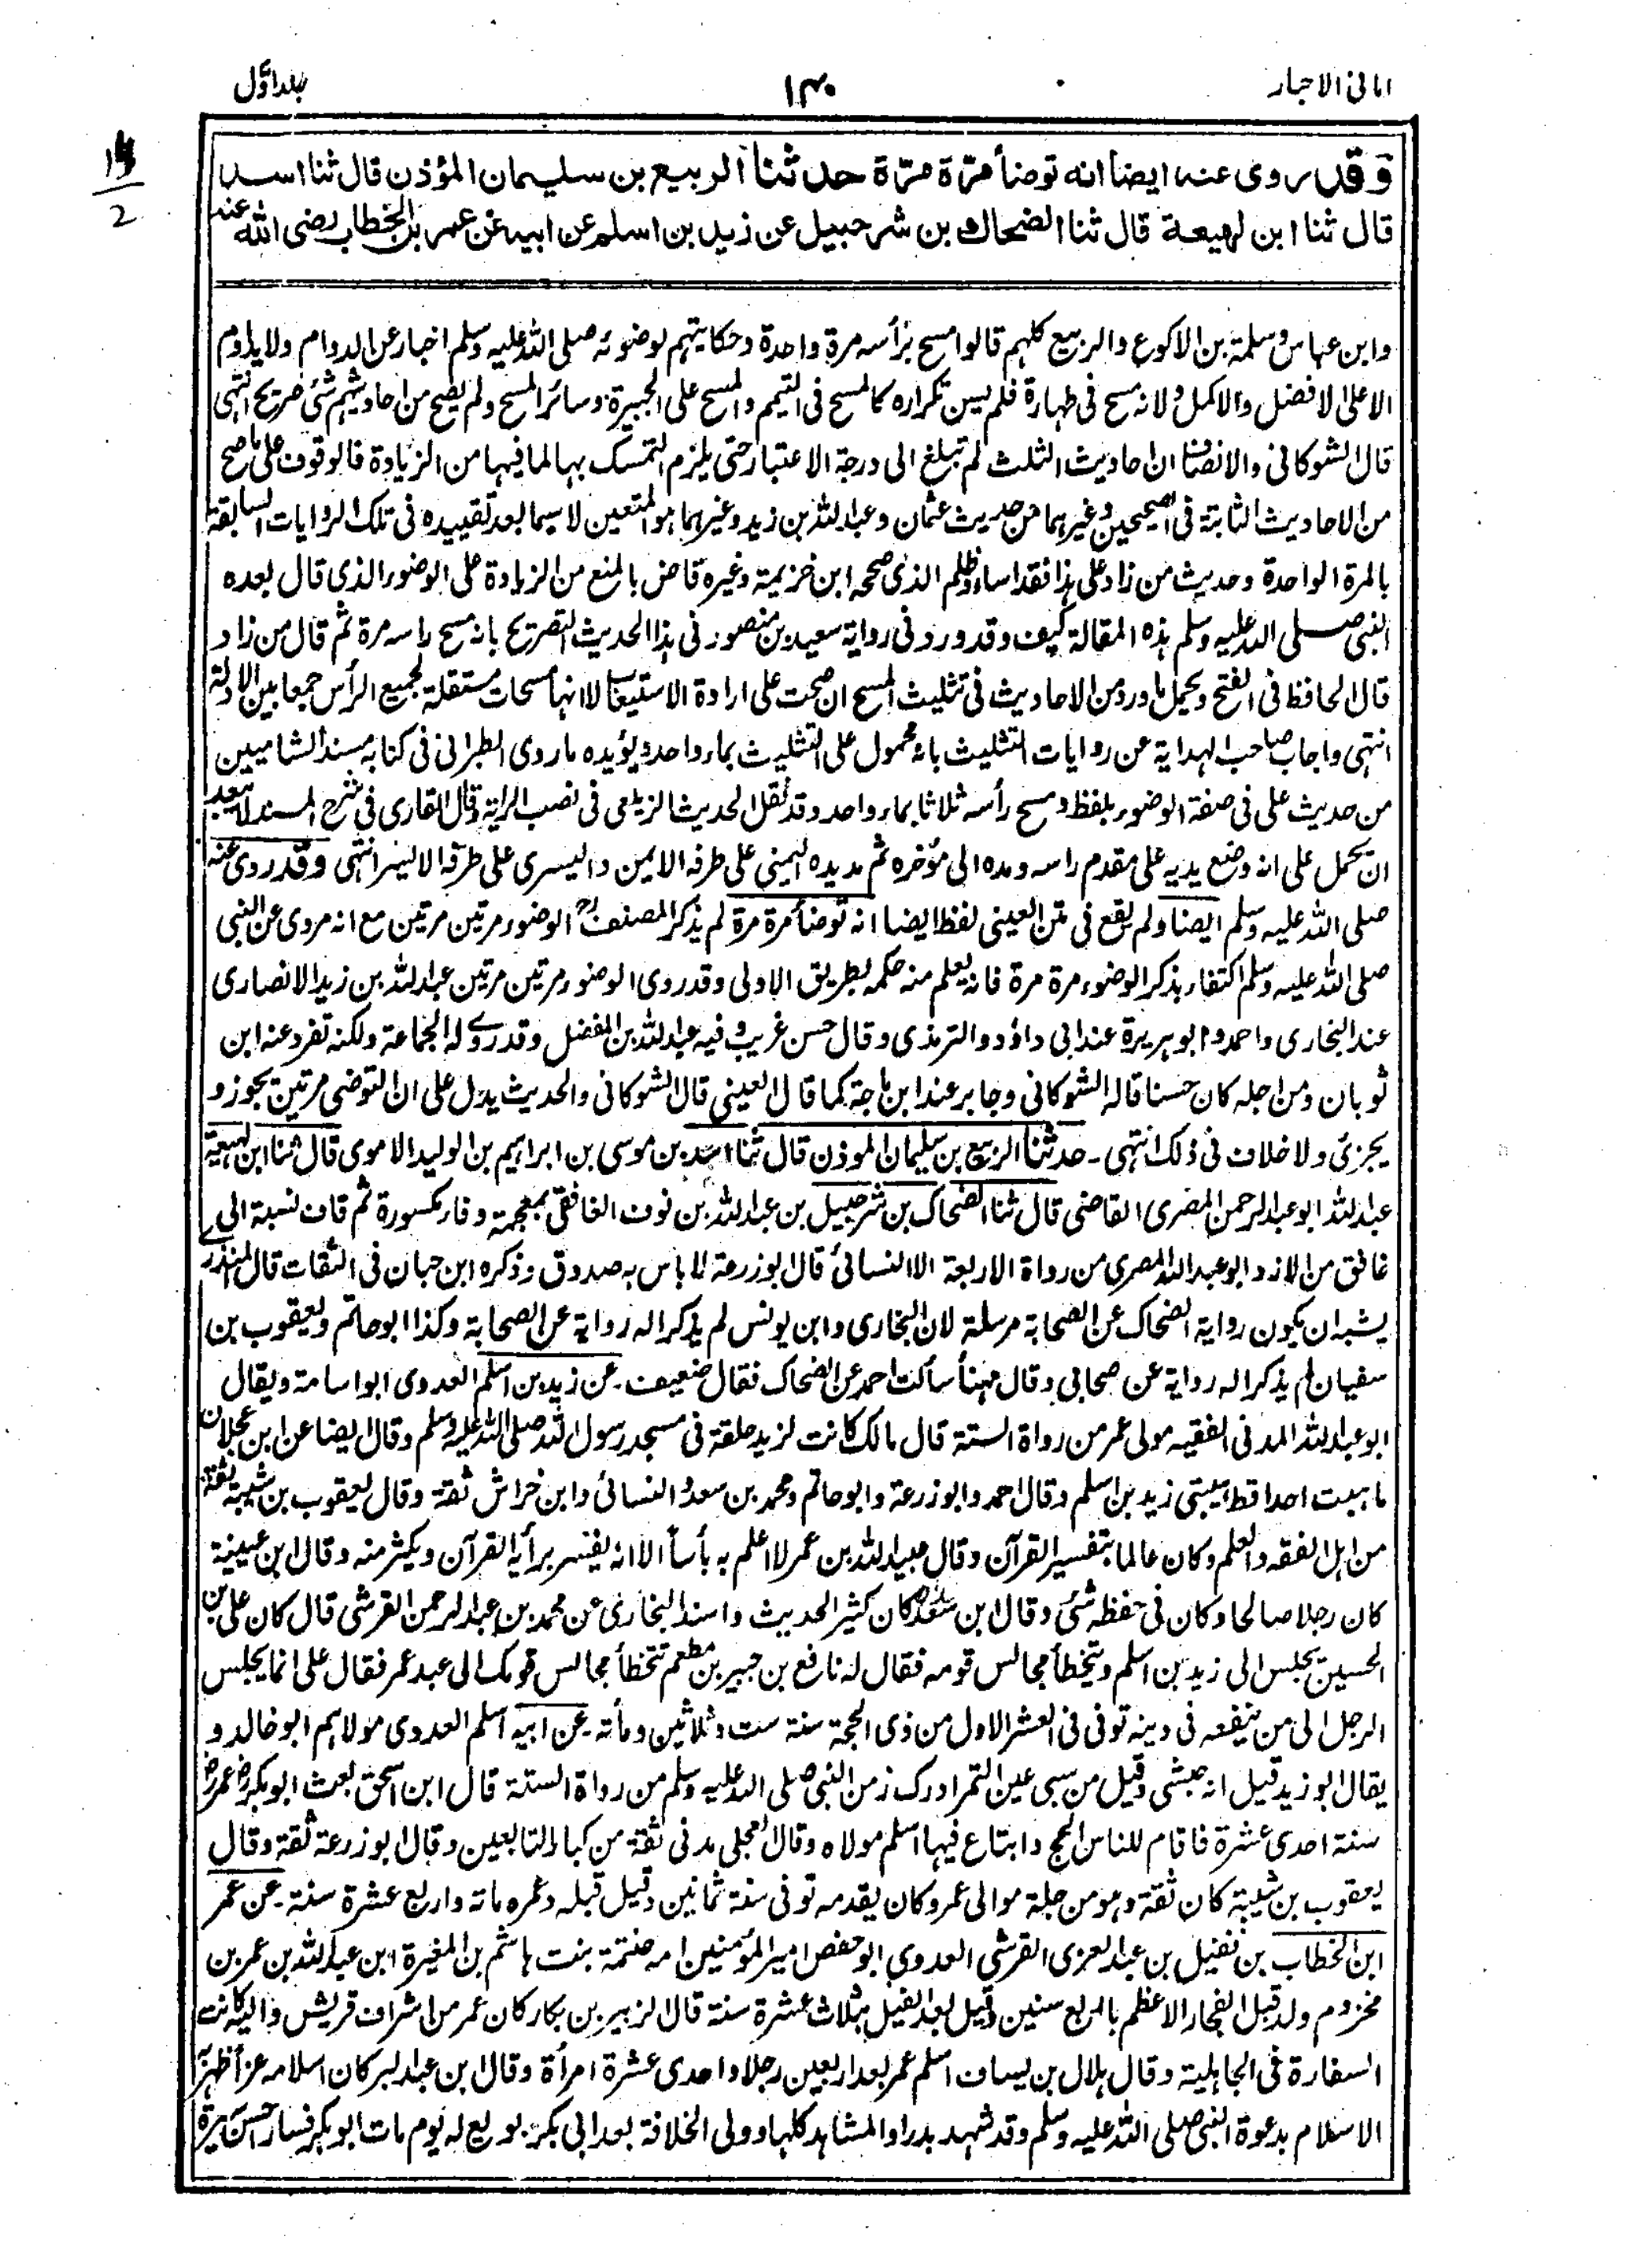 امانی الاحبار
۱۳۰
جلد اوّل
وَقد روی عنه ایضا انه توضأ مرّة مرّة حدثنا الربیع بن سلیمان المؤذن قال ثنا اسد
قال ثنا ابن لهیعة قال ثنا الضحاك بن شرحبیل عن زید بن اسلم عن ابیه عن عمر بن الخطاب رضی الله عنه
وابن عباس وسلمة بن الاکوع والربیع کلهم قالوا مسح برأسه مرة واحدة وحکایتهم لوضوئه صلی الله علیه وسلم اخبار عن الدوام ولا یداوم
الا علی الافضل والاکمل ولانه مسح فی طهارة فلم یسن تکراره کالمسح فی التیمم والمسح علی الجبیرة وسائر المسح ولم یصح من احادیثهم شئ صریح انتهی
قال الشوکانی والانصاف ان احادیث الثلث لم تبلغ الی درجة الاعتبار حتی یلزم التمسک بها لما فیها من الزیادة فالوقوف علی ما صح
من الاحادیث الثابتة فی الصحیحین وغیرهما من حدیث عثمان وعبدالله بن زید وغیرهما هو المتعین لا سیما بعد تقییده فی تلک الروایات السابقة
بالمرة الواحدة وحدیث من زاد علی هذا فقد اساء وظلم الذی صححه ابن خزیمة وغیره قاض بالمنع من الزیادة علی الوضوء الذی قال بعده
النبی صلی الله علیه وسلم هذه المقالة کیف وقد ورد فی روایة سعید بن منصور فی هذا الحدیث التصریح بانه مسح راسه مرة ثم قال من زاد
قال الحافظ فی الفتح ویحمل ما ورد من الاحادیث فی تثلیث المسح ان صحت علی ارادة الاستیعاب لا انها مسحات مستقلة لجمیع الرأس جمعا بین الادلة
انتهی واجاب صاحب الهدایة عن روایات التثلیث بانه محمول علی التثلیث بماء واحد ویؤیده ما روی الطبرانی فی کتابه مسند الشامیین
من حدیث علی فی صفة الوضوء بلفظ ومسح رأسه ثلاثا بماء واحد وقد نقل الحدیث الزیلعی فی نصب الرایة وقال القاری فی شرح المسند لا یبعد
ان یحمل علی انه وضع یدیه علی مقدم راسه ومده الی مؤخره ثم مد یده الیمنی علی طرفه الایمن والیسری علی طرفه الایسر انتهی وقد روی عنه
صلی الله علیه وسلم ایضا ولم یقع فی متن العینی لفظ ایضا انه توضأ مرة مرة لم یذکر المصنف رح الوضوء مرتین مرتین مع انه مروی عن النبی
صلی الله علیه وسلم اکتفاء بذکر الوضوء مرة مرة فانه یعلم منه حکمه بطریق الاولی وقد روی الوضوء مرتین مرتین عبدالله بن زید الانصاری
عند البخاری واحمد وابو هریرة عند ابی داؤد والترمذی وقال حسن غریب وفیه عبدالله بن المفضل وقد روے له الجماعة ولکنه تفرد عنه ابن
ثوبان ومن اجله کان حسنا قاله الشوکانی وجابر عند ابن ماجة کما قال العینی قال الشوکانی والحدیث یدل علی ان التوضی مرتین یجوز و
یجزئ ولا خلاف فی ذلک انتهی ۔ حدثنا الربیع بن سلیمان الموذن قال ثنا اسد بن موسی بن ابراهیم بن الولید الاموی قال ثنا ابن لهیعة
عبدالله ابو عبدالرحمن المصری القاضی قال ثنا الضحاک بن شرحبیل بن عبدالله بن نوف الغافقی بمعجمة وفاء مکسورة ثم قاف نسبة الی
غافق من الازد ابو عبدالله المصری من رواة الاربعة الا النسائی قال ابو زرعة لا باس به صدوق وذکره ابن حبان فی الثقات قال المنذری
یشبه ان یکون روایة الضحاک عن الصحابة مرسلة لان البخاری وابن یونس لم یذکرا له روایة عن الصحابة وکذا ابو حاتم ویعقوب بن
سفیان لم یذکرا له روایة عن صحابی وقال مهنأ سألت احمد عن الضحاک فقال ضعیف ۔ عن زید بن اسلم العدوی ابو اسامة ویقال
ابو عبدالله المدنی الفقیه مولی عمر من رواة الستة قال مالک کانت لزید حلقة فی مسجد رسول الله صلی الله علیه وسلم وقال ایضا عن ابن عجلان
ما هبت احدا قط هیبتی زید بن اسلم وقال احمد وابو زرعة وابو حاتم ومحمد بن سعد والنسائی وابن خراش ثقة وقال یعقوب بن شیبة ثقة
من اهل الفقه والعلم وکان عالما بتفسیر القرآن وقال عبیدالله بن عمر لا اعلم به بأسا الا انه یفسر برأیه القرآن ویکثر منه وقال ابن عیینة
کان رجلا صالحا وکان فی حفظه شئ وقال ابن سعد کان کثیر الحدیث واسند البخاری عن محمد بن عبدالرحمن القرشی قال کان علی بن
الحسین یجلس الی زید بن اسلم ویتخطأ مجالس قومه فقال له نافع بن جبیر بن مطعم تتخطأ مجالس قومک الی عبد عمر فقال علی انما یجلس
الرجل الی من ینفعه فی دینه توفی فی العشر الاول من ذی الحجة سنة ست وثلاثین ومأته ۔ عن ابیه اسلم العدوی مولاهم ابو خالد و
یقال ابو زید قیل انه حبشی وقیل من سبی عین التمر ادرک زمن النبی صلی الله علیه وسلم من رواة الستة قال ابن اسحق بعث ابو بکر رض عمر رض
سنة احدی عشرة فاقام للناس الحج وابتاع فیها اسلم مولاه وقال العجلی مدنی ثقة من کبار التابعین وقال ابو زرعة ثقة وقال
یعقوب بن شیبة کان ثقة وهو من جلة موالی عمر وکان یقدمه توفی سنة ثمانین وقیل قبله وعمره مأته واربع عشرة سنة ۔ عن عمر
ابن الخطاب بن نفیل بن عبدالعزی القرشی العدوی ابو حفص امیر المؤمنین امه حنتمة بنت هاشم بن المغیرة ابن عبدالله بن عمر بن
مخزوم ولد قبل الفجار الاعظم باربع سنین وقیل بعد الفیل بثلاث عشرة سنة قال الزبیر بن بکار کان عمر من اشراف قریش والیه کانت
السفارة فی الجاهلیة وقال هلال بن یساف اسلم عمر بعد اربعین رجلا واحدی عشرة امرأة وقال ابن عبدالبر کان اسلامه عزا ظهر به
الاسلام بدعوة النبی صلی الله علیه وسلم وقد شهد بدرا والمشاهد کلها وولی الخلافة بعد ابی بکر بویع له یوم مات ابو بکر فسار احسن سیرة